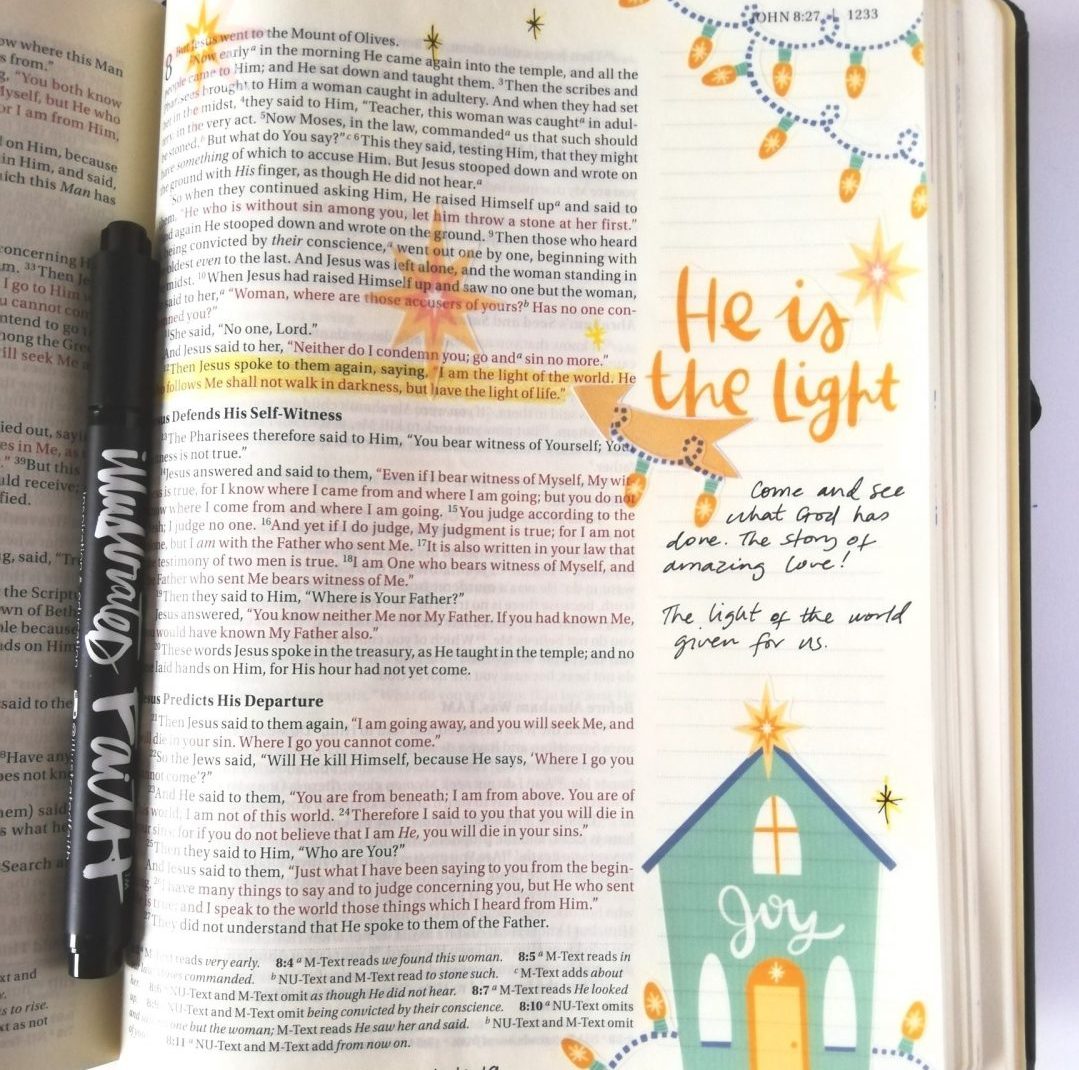 ow where this Man
s from."
g, "You both know
Myself, but He who
or I am from Him,
l on Him, because
in Him, and said,
ich this Man has
concerning
m. 33Then
I go to Him
u cannot
ntend to go
nong the
ill seek
ied out,
es in Me, as
" 39But this
uld receive;
fied.
g, said,
the Scripture
wn of
ple because
ds on Him
said to the
8Have any
oes not
hem) said
s what he
Search
xt and
s to rise.
xt as not
illustrated Faith
JOHN 8:27 1233
8 But Jesus went to the Mount of Olives.
2Now earlya in the morning He came again into the temple, and all the
people came to Him; and He sat down and taught them. 3Then the scribes and
Pharisees brought to Him a woman caught in adultery. And when they had set
her in the midst, 4they said to Him, "Teacher, this woman was caughta in adul-
tery, in the very act. 5Now Moses, in the law, commandeda us that such should
be stoned.b But what do You say?"c 6This they said, testing Him, that they might
have something of which to accuse Him. But Jesus stooped down and wrote on
the ground with His finger, as though He did not hear.a
7So when they continued asking Him, He raised Himself upa and said to
them, "He who is without sin among you, let him throw a stone at her first."
8And again He stooped down and wrote on the ground. 9Then those who heard
it, being convicted by their conscience,a went out one by one, beginning with
oldest even to the last. And Jesus was left alone, and the woman standing in
midst. 10When Jesus had raised Himself up and saw no one but the woman,
said to her,a "Woman, where are those accusers of yours?b Has no one con-
demned you?"
She said, "No one, Lord."
And Jesus said to her, "Neither do I condemn you; go anda sin no more."
12Then Jesus spoke to them again, saying, "I am the light of the world. He
who follows Me shall not walk in darkness, but have the light of life."
Jesus Defends His Self-Witness
13The Pharisees therefore said to Him, "You bear witness of Yourself; Your
witness is not true."
14Jesus answered and said to them, "Even if I bear witness of Myself, My wit-
ness is true, for I know where I came from and where I am going; but you do not
know where I come from and where I am going. 15You judge according to the
flesh; I judge no one. 16And yet if I do judge, My judgment is true; for I am not
alone, but I am with the Father who sent Me. 17It is also written in your law that
the testimony of two men is true. 18I am One who bears witness of Myself, and
the Father who sent Me bears witness of Me."
19Then they said to Him, "Where is Your Father?"
Jesus answered, "You know neither Me nor My Father. If you had known Me,
you would have known My Father also."
20These words Jesus spoke in the treasury, as He taught in the temple; and no
one laid hands on Him, for His hour had not yet come.
Jesus Predicts His Departure
21Then Jesus said to them again, "I am going away, and you will seek Me, and
will die in your sin. Where I go you cannot come."
22So the Jews said, "Will He kill Himself, because He says, 'Where I go you
cannot come'?"
23And He said to them, "You are from beneath; I am from above. You are of
this world, I am not of this world. 24Therefore I said to you that you will die in
your sins; for if you do not believe that I am He, you will die in your sins."
25Then they said to Him, "Who are You?"
And Jesus said to them, "Just what I have been saying to you from the begin-
ning. 26I have many things to say and to judge concerning you, but He who sent
Me is true; and I speak to the world those things which I heard from Him."
27They did not understand that He spoke to them of the Father.
M-Text reads very early. 8:4 a M-Text reads we found this woman. 8:5 a M-Text reads in
our law Moses commanded. b NU-Text and M-Text read to stone such. c M-Text adds about
her. 8:6 a NU-Text and M-Text omit as though He did not hear. 8:7 a M-Text reads He looked
up. 8:9 a NU-Text and M-Text omit being convicted by their conscience. 8:10 a NU-Text omits
and saw no one but the woman; M-Text reads He saw her and said. b NU-Text and M-Text omit
of yours. 8:11 a NU-Text and M-Text add from now on.
He is
the Light
Come and see
what God has
done. The story of
amazing love!
The light of the world
given for us.
Joy